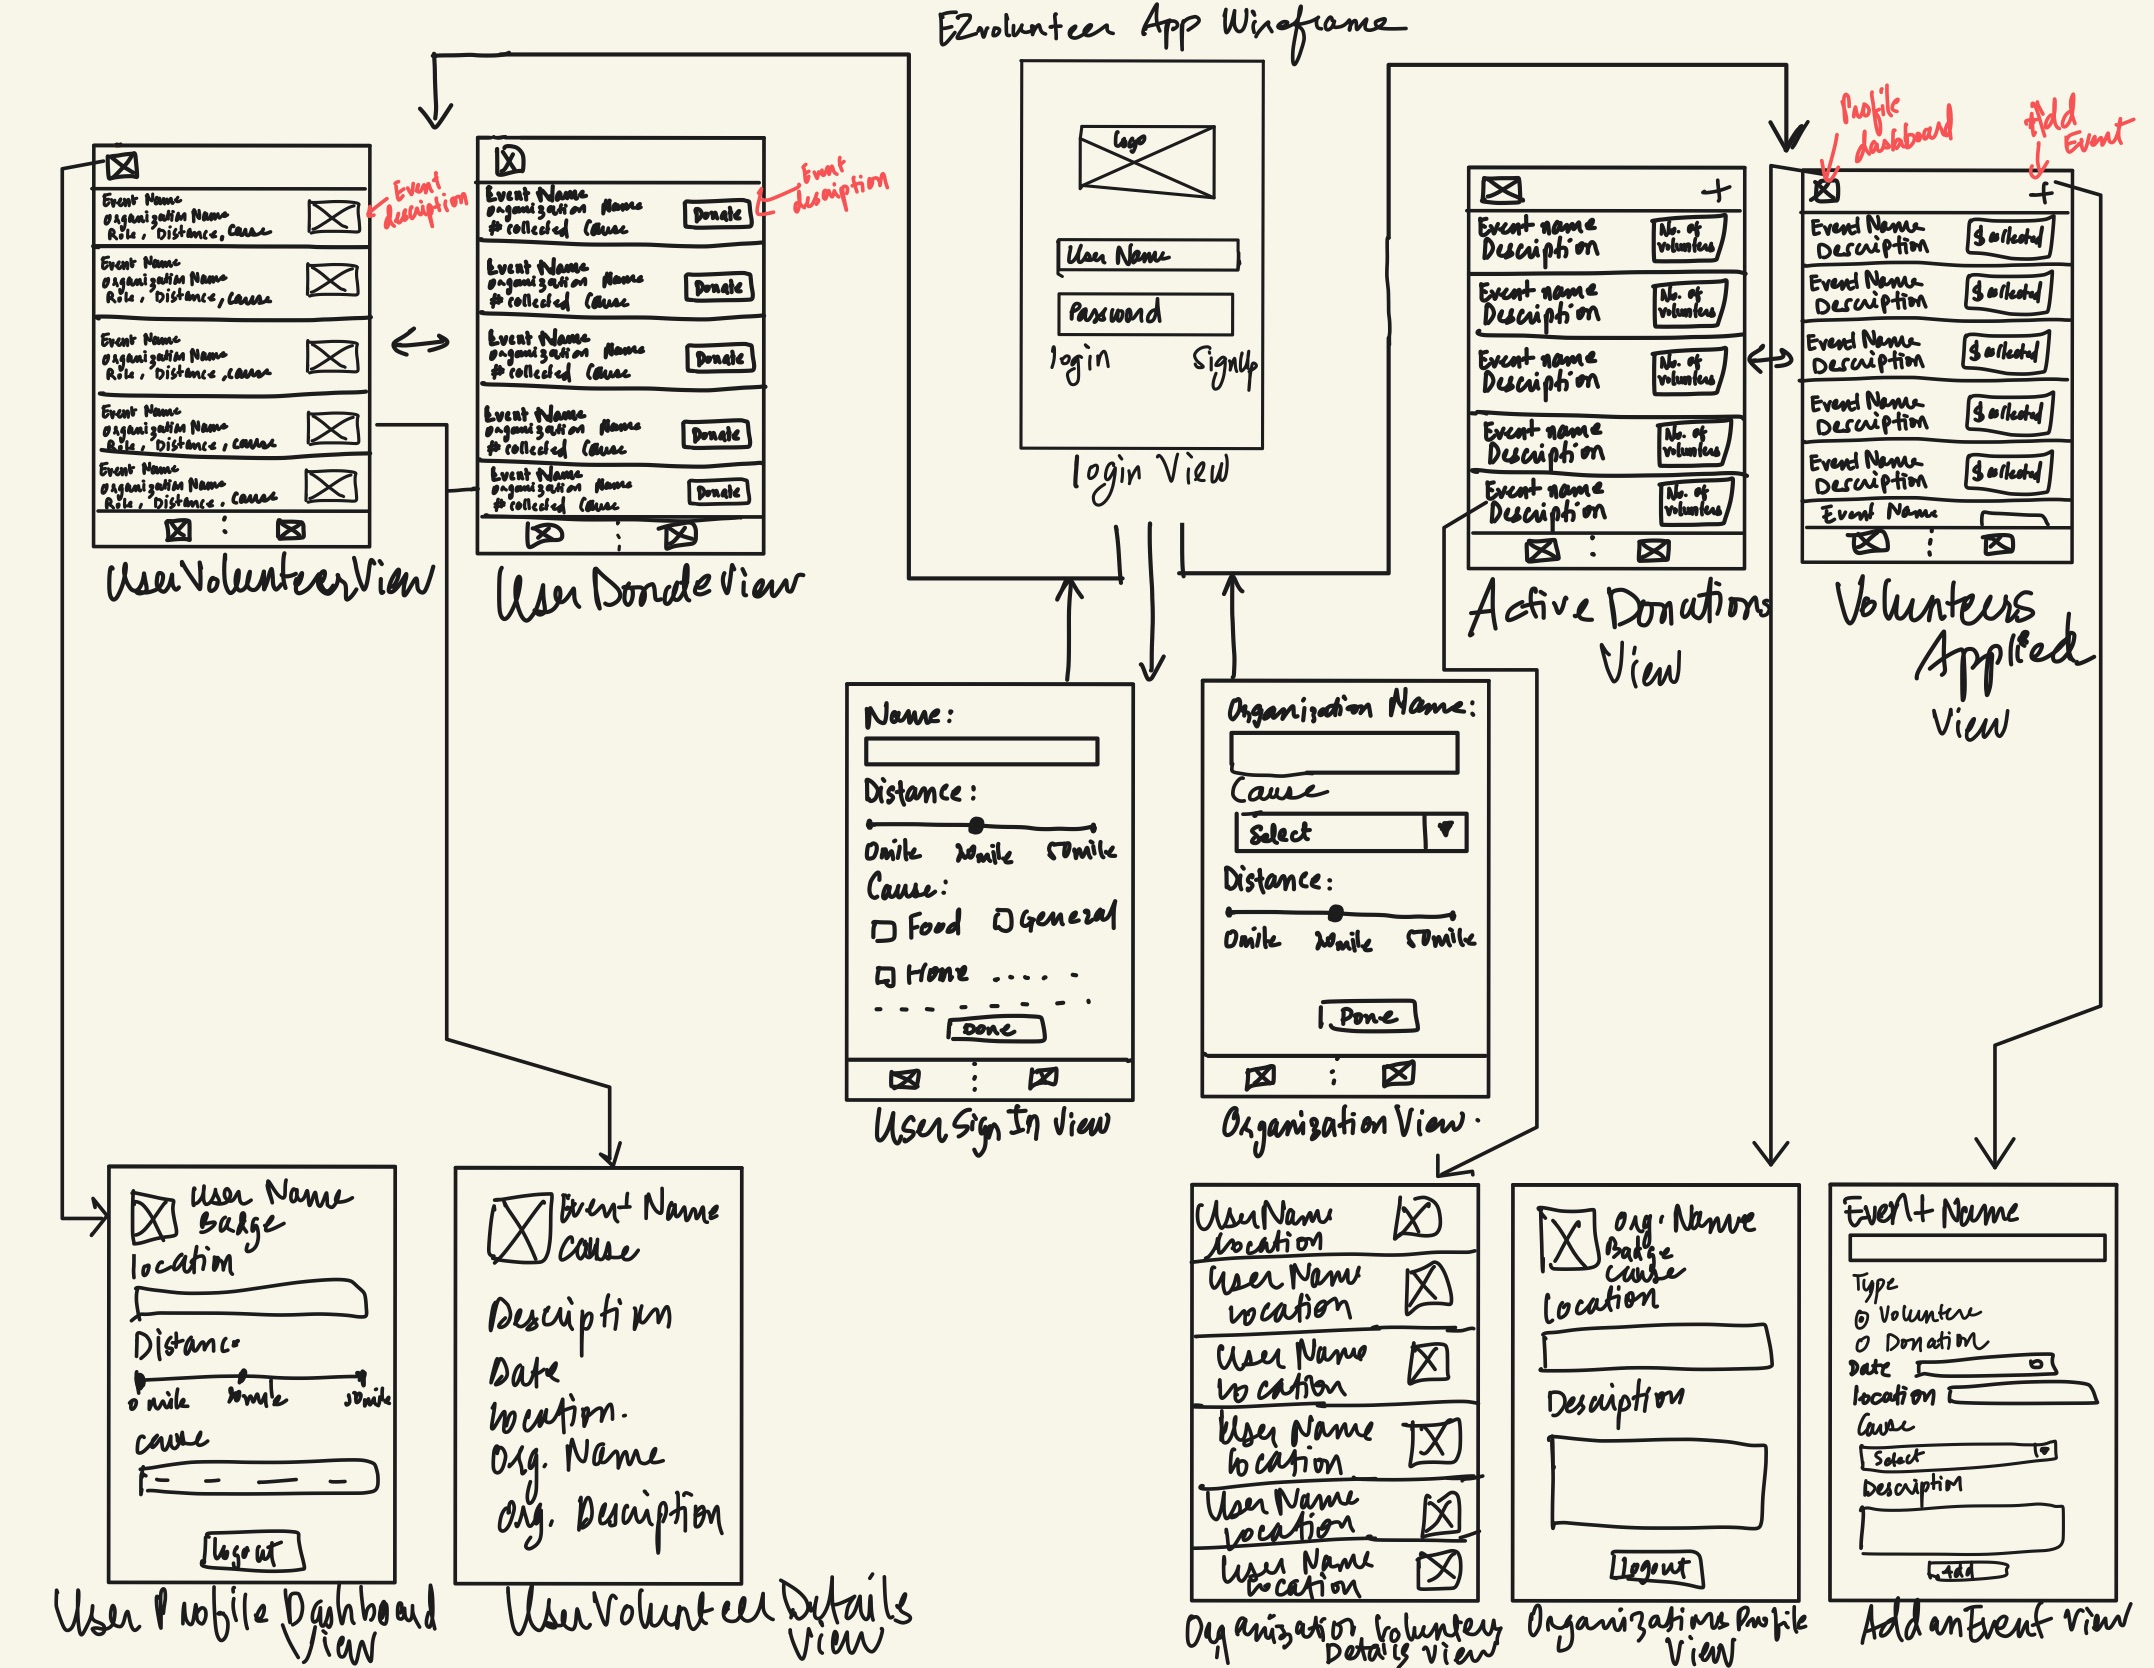 EZvolunteer App Wireframe
Logo
User Name
Password
login SignUp
login View
Event Name
Organization Name
Role, Distance, Cause
Event Name
Organization Name
Role, Distance, Cause
Event Name
Organization Name
Role, Distance, Cause
Event Name
Organization Name
Role, Distance, Cause
Event Name
Organization Name
Role, Distance, Cause
User Volunteer View
Event
description
Event Name
Organization Name
# collected Cause
Donate
Event Name
Organization Name
# collected Cause
Donate
Event Name
Organization Name
# collected Cause
Donate
Event Name
Organization Name
# collected Cause
Donate
Event Name
Organization Name
# collected Cause
Donate
User Donate View
Event
desciption
+
Event name
Desciption
No. of
volunters
Event name
Desciption
No. of
volunters
Event name
Desciption
No. of
volunters
Event name
Desciption
No. of
volunters
Event name
Desciption
No. of
volunters
Active Donations
View
Profile
dasboard
Add
Event
+
Event Name
Description
$ collected
Event Name
Description
$ collected
Event Name
Description
$ collected
Event Name
Description
$ collected
Event Name
Description
$ collected
Event Name
Volunteers
Applied
View
Name:
Distance:
0mile 20mile 50mile
Cause:
Food General
Home
Done
User Sign In View
Organization Name:
Cause
Select
Distance:
0mile 20mile 50mile
Done
Organization View.
User Name
Badge
location
Distance
0 mile 20mile 50mile
cause
Logout
User Profile Dashboard
View
Event Name
Cause
Description
Date
Location.
Org. Name
Org. Description
User Volunteer Details
View
User Name
Location
User Name
Location
User Name
Location
User Name
Location
User Name
Location
User Name
Location
Organization Volunteer
Details View
Org. Name
Badge
Cause
Location
Desciption
Logout
Organizations Profile
View
Event Name
Type
Volunteer
Donation
Date
location
Cause
Select
Description
Add
Add an Event View